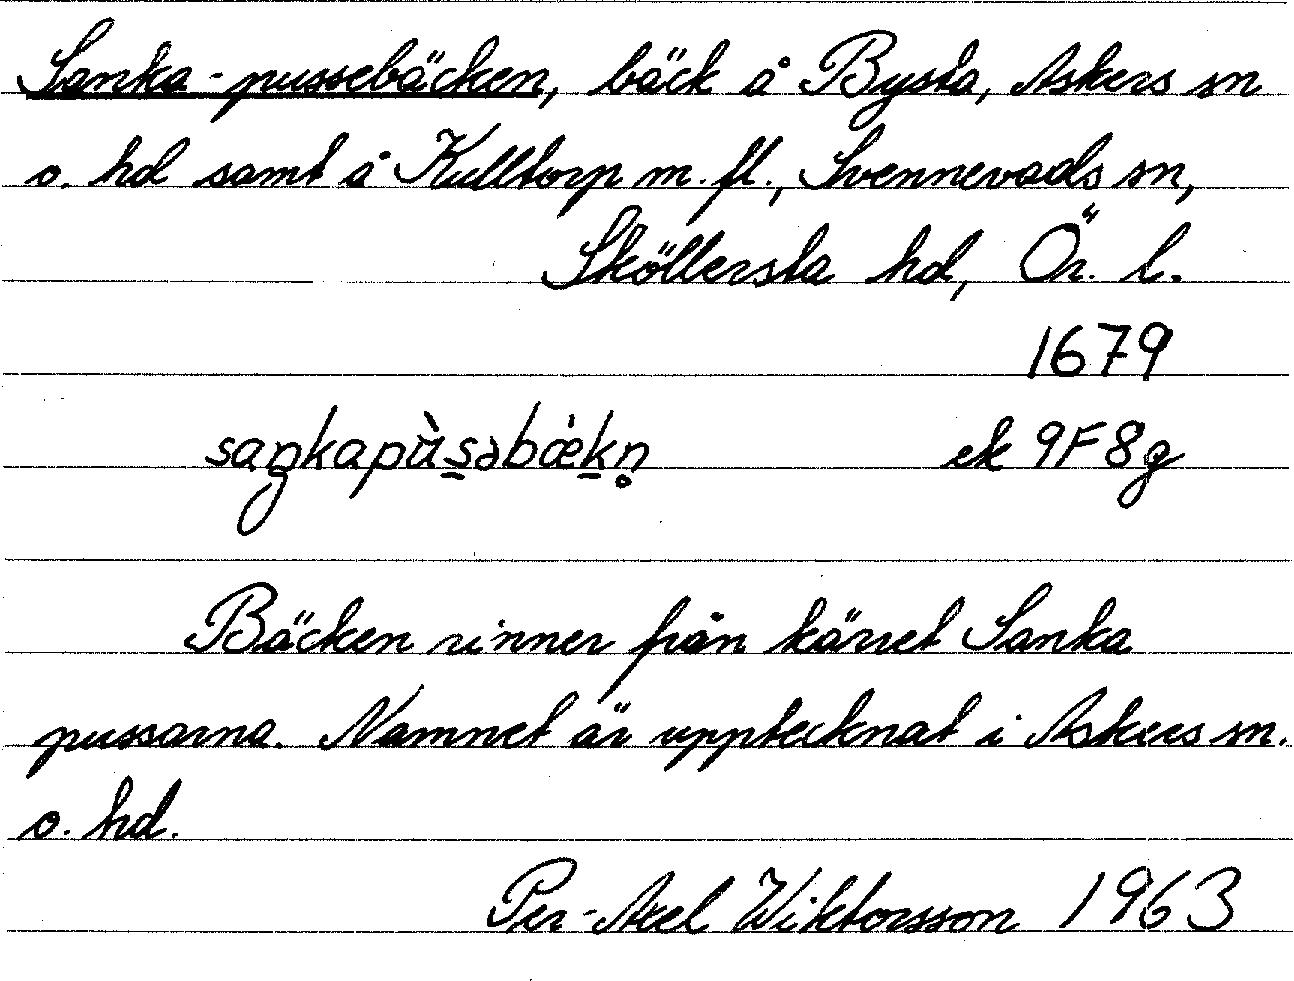 Sanka-pussebäcken, bäck å Bysta, Askers sn
o. hd samt å Kulltorp m.fl., Svennevads sn,
Sköllersta hd, Ör. l.
1679
saŋkapùs̠əbǽk̠n̥ ek 9F8g
Bäcken rinner från kärret Sanka
pussarna. Namnet är upptecknat i Askers sn.
o. hd.
Per-Axel Wiktorsson 1963